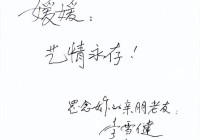 媛媛：
艺情永存！
思念好似亲朋老友：
李雪健